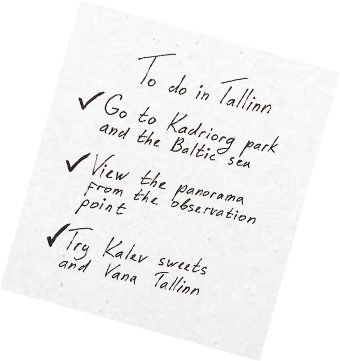 To do in Tallinn
✓ Go to Kadriorg park
and the Baltic sea
✓ View the panorama
from the observation
point
✓ Try Kalev sweets
and Vana Tallinn